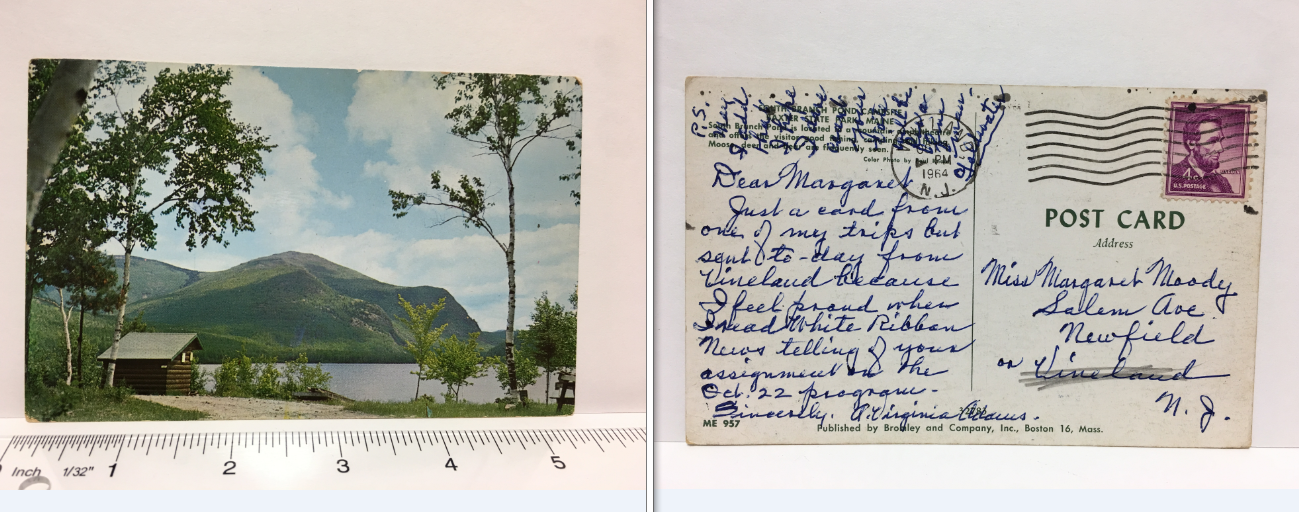 Inch 1/32" 1 2 3 4 5
P.S.
SOUTH BRANCH POND CAMPSITE
BAXTER STATE PARK, MAINE
South Branch Pond is located in a mountain
and offers the visitor good fishing,
Moose, deer and bear are frequently seen.
Color Photo by
PM
1964
N. J.
4¢
U.S. POSTAGE
Dear Margaret
Just a card from
one of my trips but
sent to-day from
Vineland because
I feel proud when
I read White Ribbon
News telling of your
assignment on the
Oct. 22 program.
Sincerely, A. Virginia Adams.
POST CARD
Address
Miss Margaret Moody
Salem Ave
Newfield
or Vineland
N. J.
ME 957
Published by Bromley and Company, Inc., Boston 16, Mass.